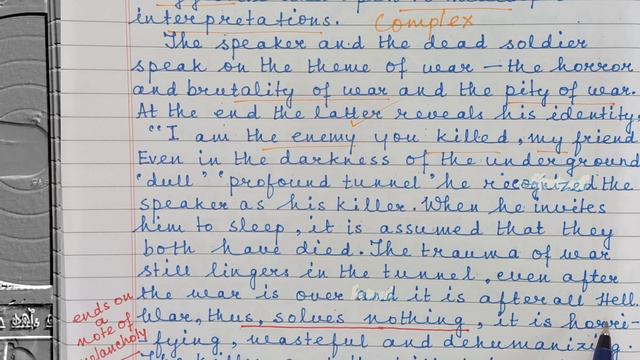 interpretations. Complex
The speaker and the dead soldier
speak on the theme of war – the horror
and brutality of war and the pity of war.
At the end the latter reveals his identity,
"I am the enemy you killed, my friend
Even in the darkness of the underground
"dull" "profound tunnel" he recognized the
speaker as his killer. When he invites
him to sleep, it is assumed that they
both have died. The trauma of war
still lingers in the tunnel, even after
the war is over and it is after all Hell.
War, thus, solves nothing, it is horri-
fying, wasteful and dehumanizing.
ends on
a
note of
melancholy